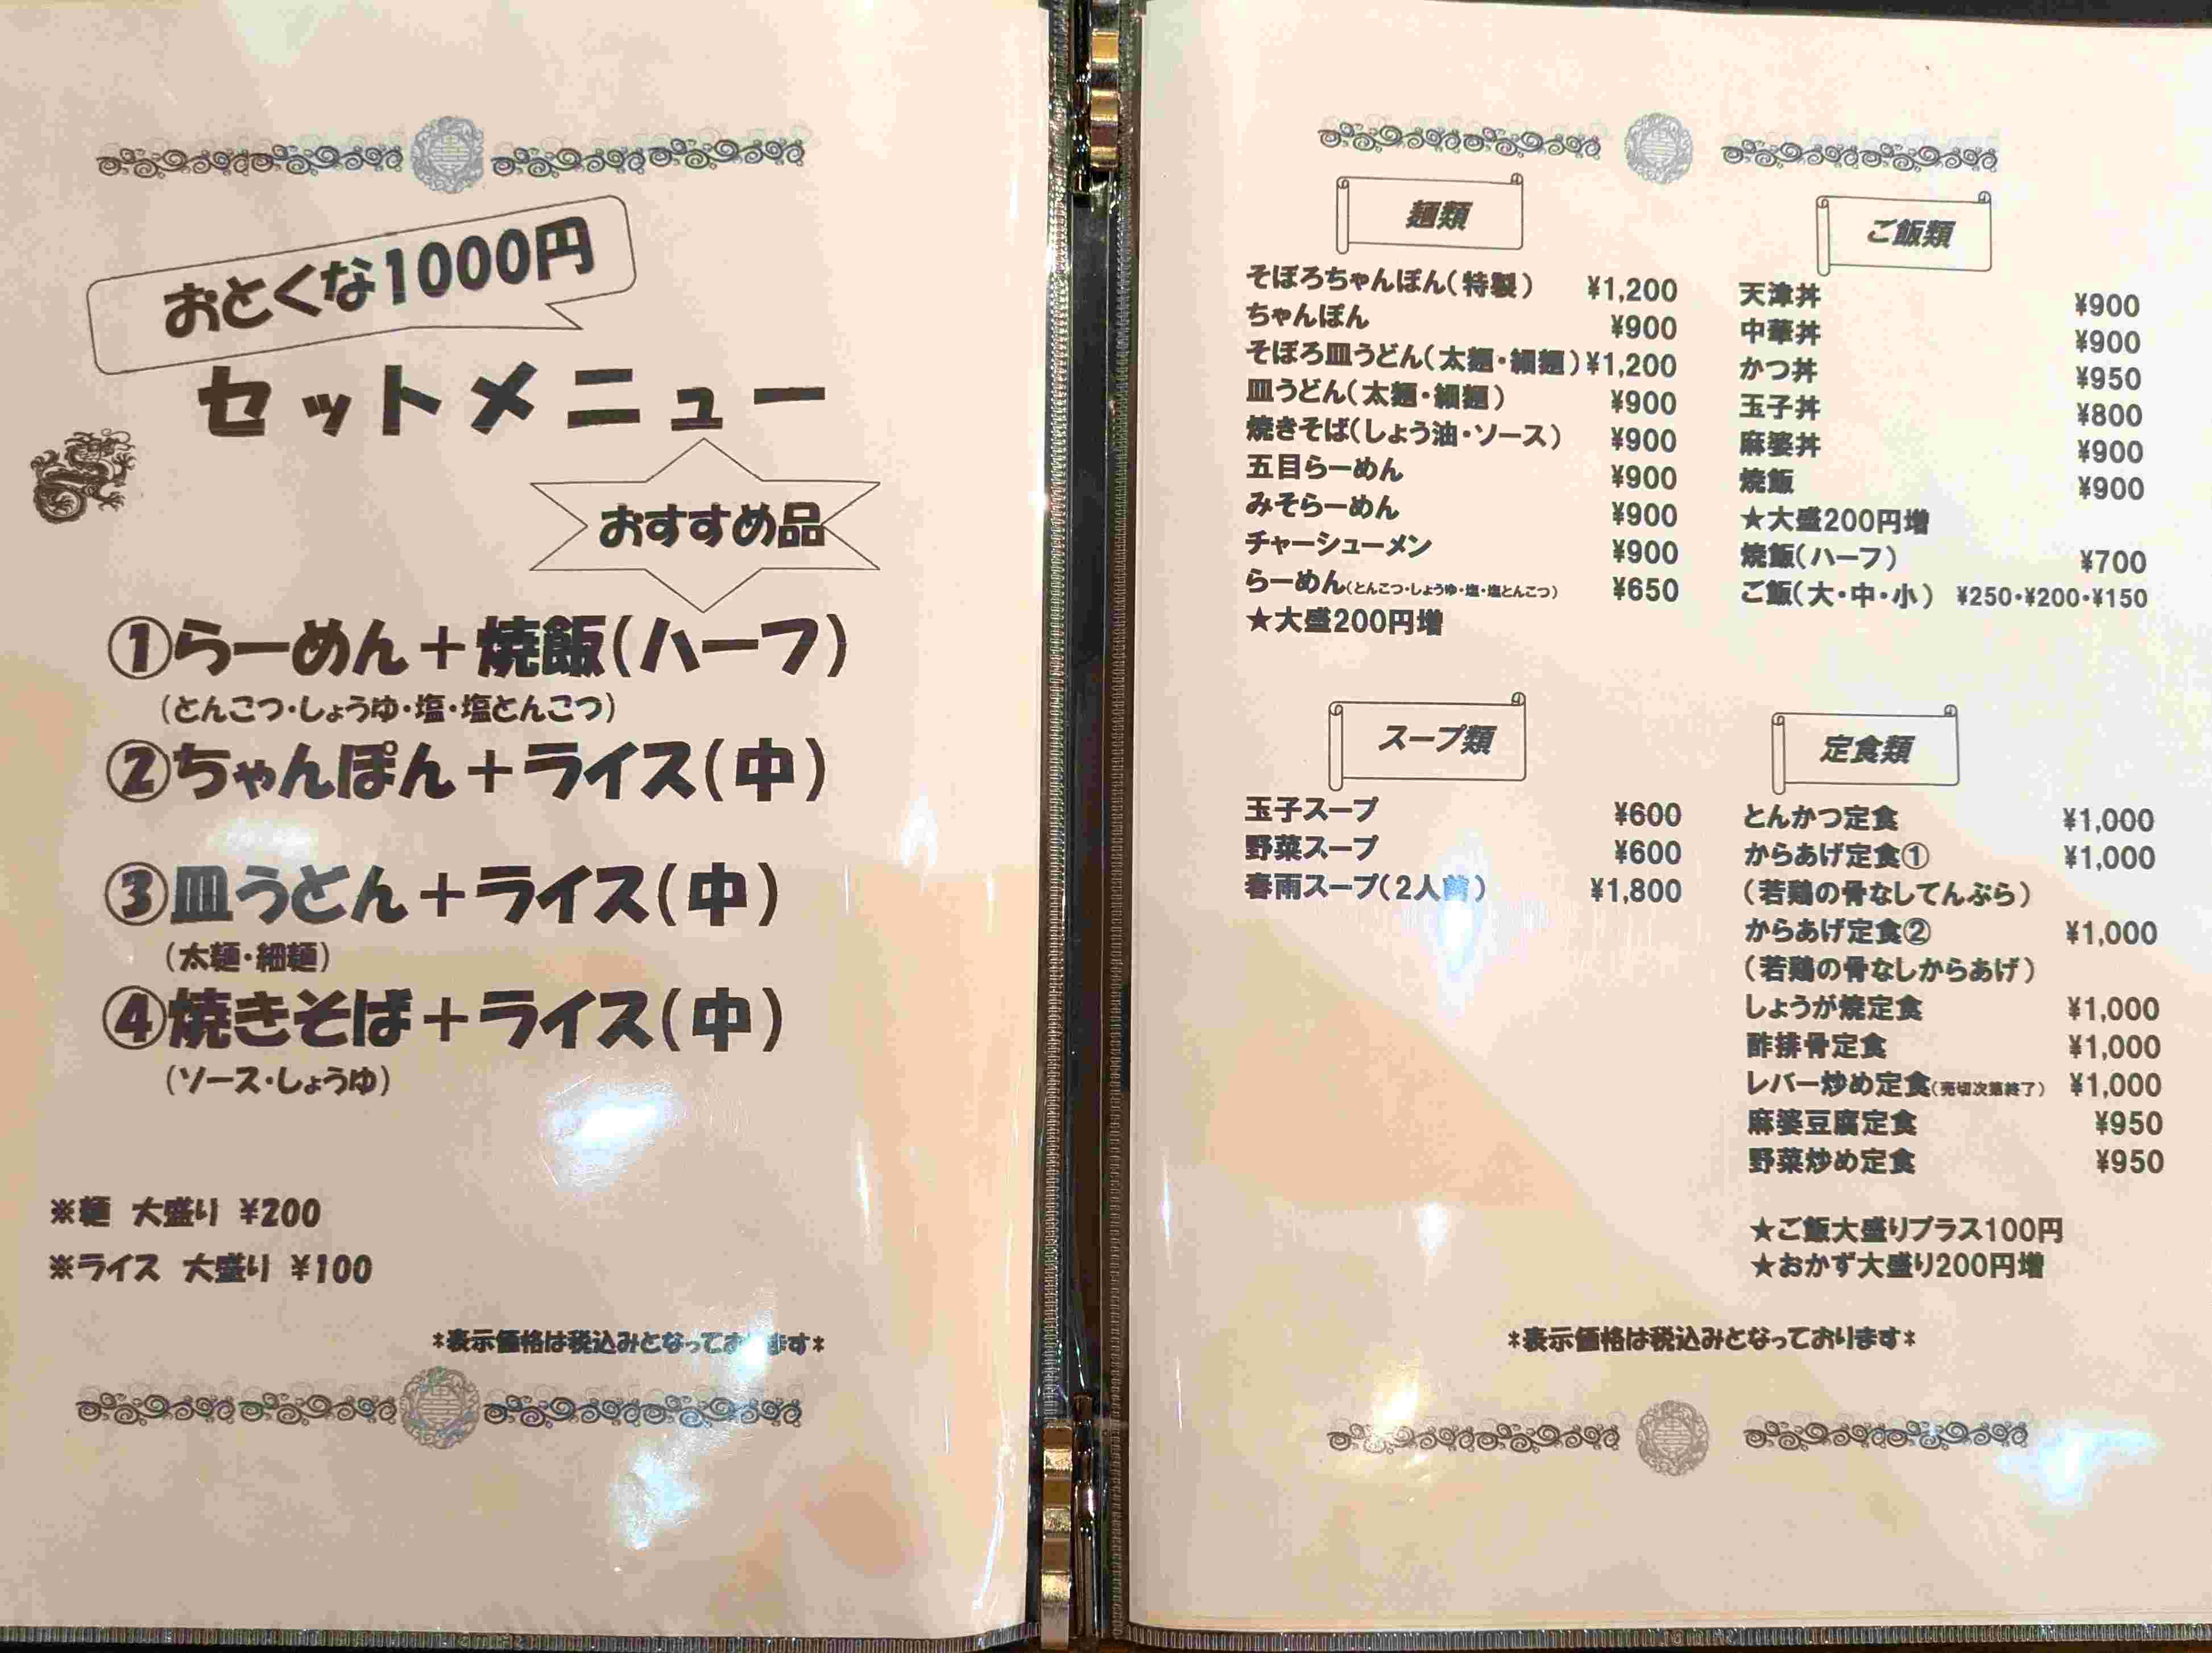 おとくな1000円
セットメニュー
おすすめ品
①らーめん＋焼飯(ハーフ)
(とんこつ・しょうゆ・塩・塩とんこつ)
②ちゃんぽん＋ライス(中)
③皿うどん＋ライス(中)
(太麺・細麺)
④焼きそば＋ライス(中)
(ソース・しょうゆ)
※麺 大盛り ¥200
※ライス 大盛り ¥100
*表示価格は税込みとなっております*
麺類
そぼろちゃんぽん(特製) ¥1,200
ちゃんぽん ¥900
そぼろ皿うどん(太麺・細麺) ¥1,200
皿うどん(太麺・細麺) ¥900
焼きそば(しょう油・ソース) ¥900
五目らーめん ¥900
みそらーめん ¥900
チャーシューメン ¥900
らーめん(とんこつ・しょうゆ・塩・塩とんこつ) ¥650
★大盛200円増
ご飯類
天津丼 ¥900
中華丼 ¥900
かつ丼 ¥950
玉子丼 ¥800
麻婆丼 ¥900
焼飯 ¥900
★大盛200円増
焼飯(ハーフ) ¥700
ご飯(大・中・小) ¥250・¥200・¥150
スープ類
玉子スープ ¥600
野菜スープ ¥600
春雨スープ(2人前) ¥1,800
定食類
とんかつ定食 ¥1,000
からあげ定食① ¥1,000
(若鶏の骨なしてんぷら)
からあげ定食② ¥1,000
(若鶏の骨なしからあげ)
しょうが焼定食 ¥1,000
酢排骨定食 ¥1,000
レバー炒め定食(売切次第終了) ¥1,000
麻婆豆腐定食 ¥950
野菜炒め定食 ¥950
★ご飯大盛りプラス100円
★おかず大盛り200円増
*表示価格は税込みとなっております*